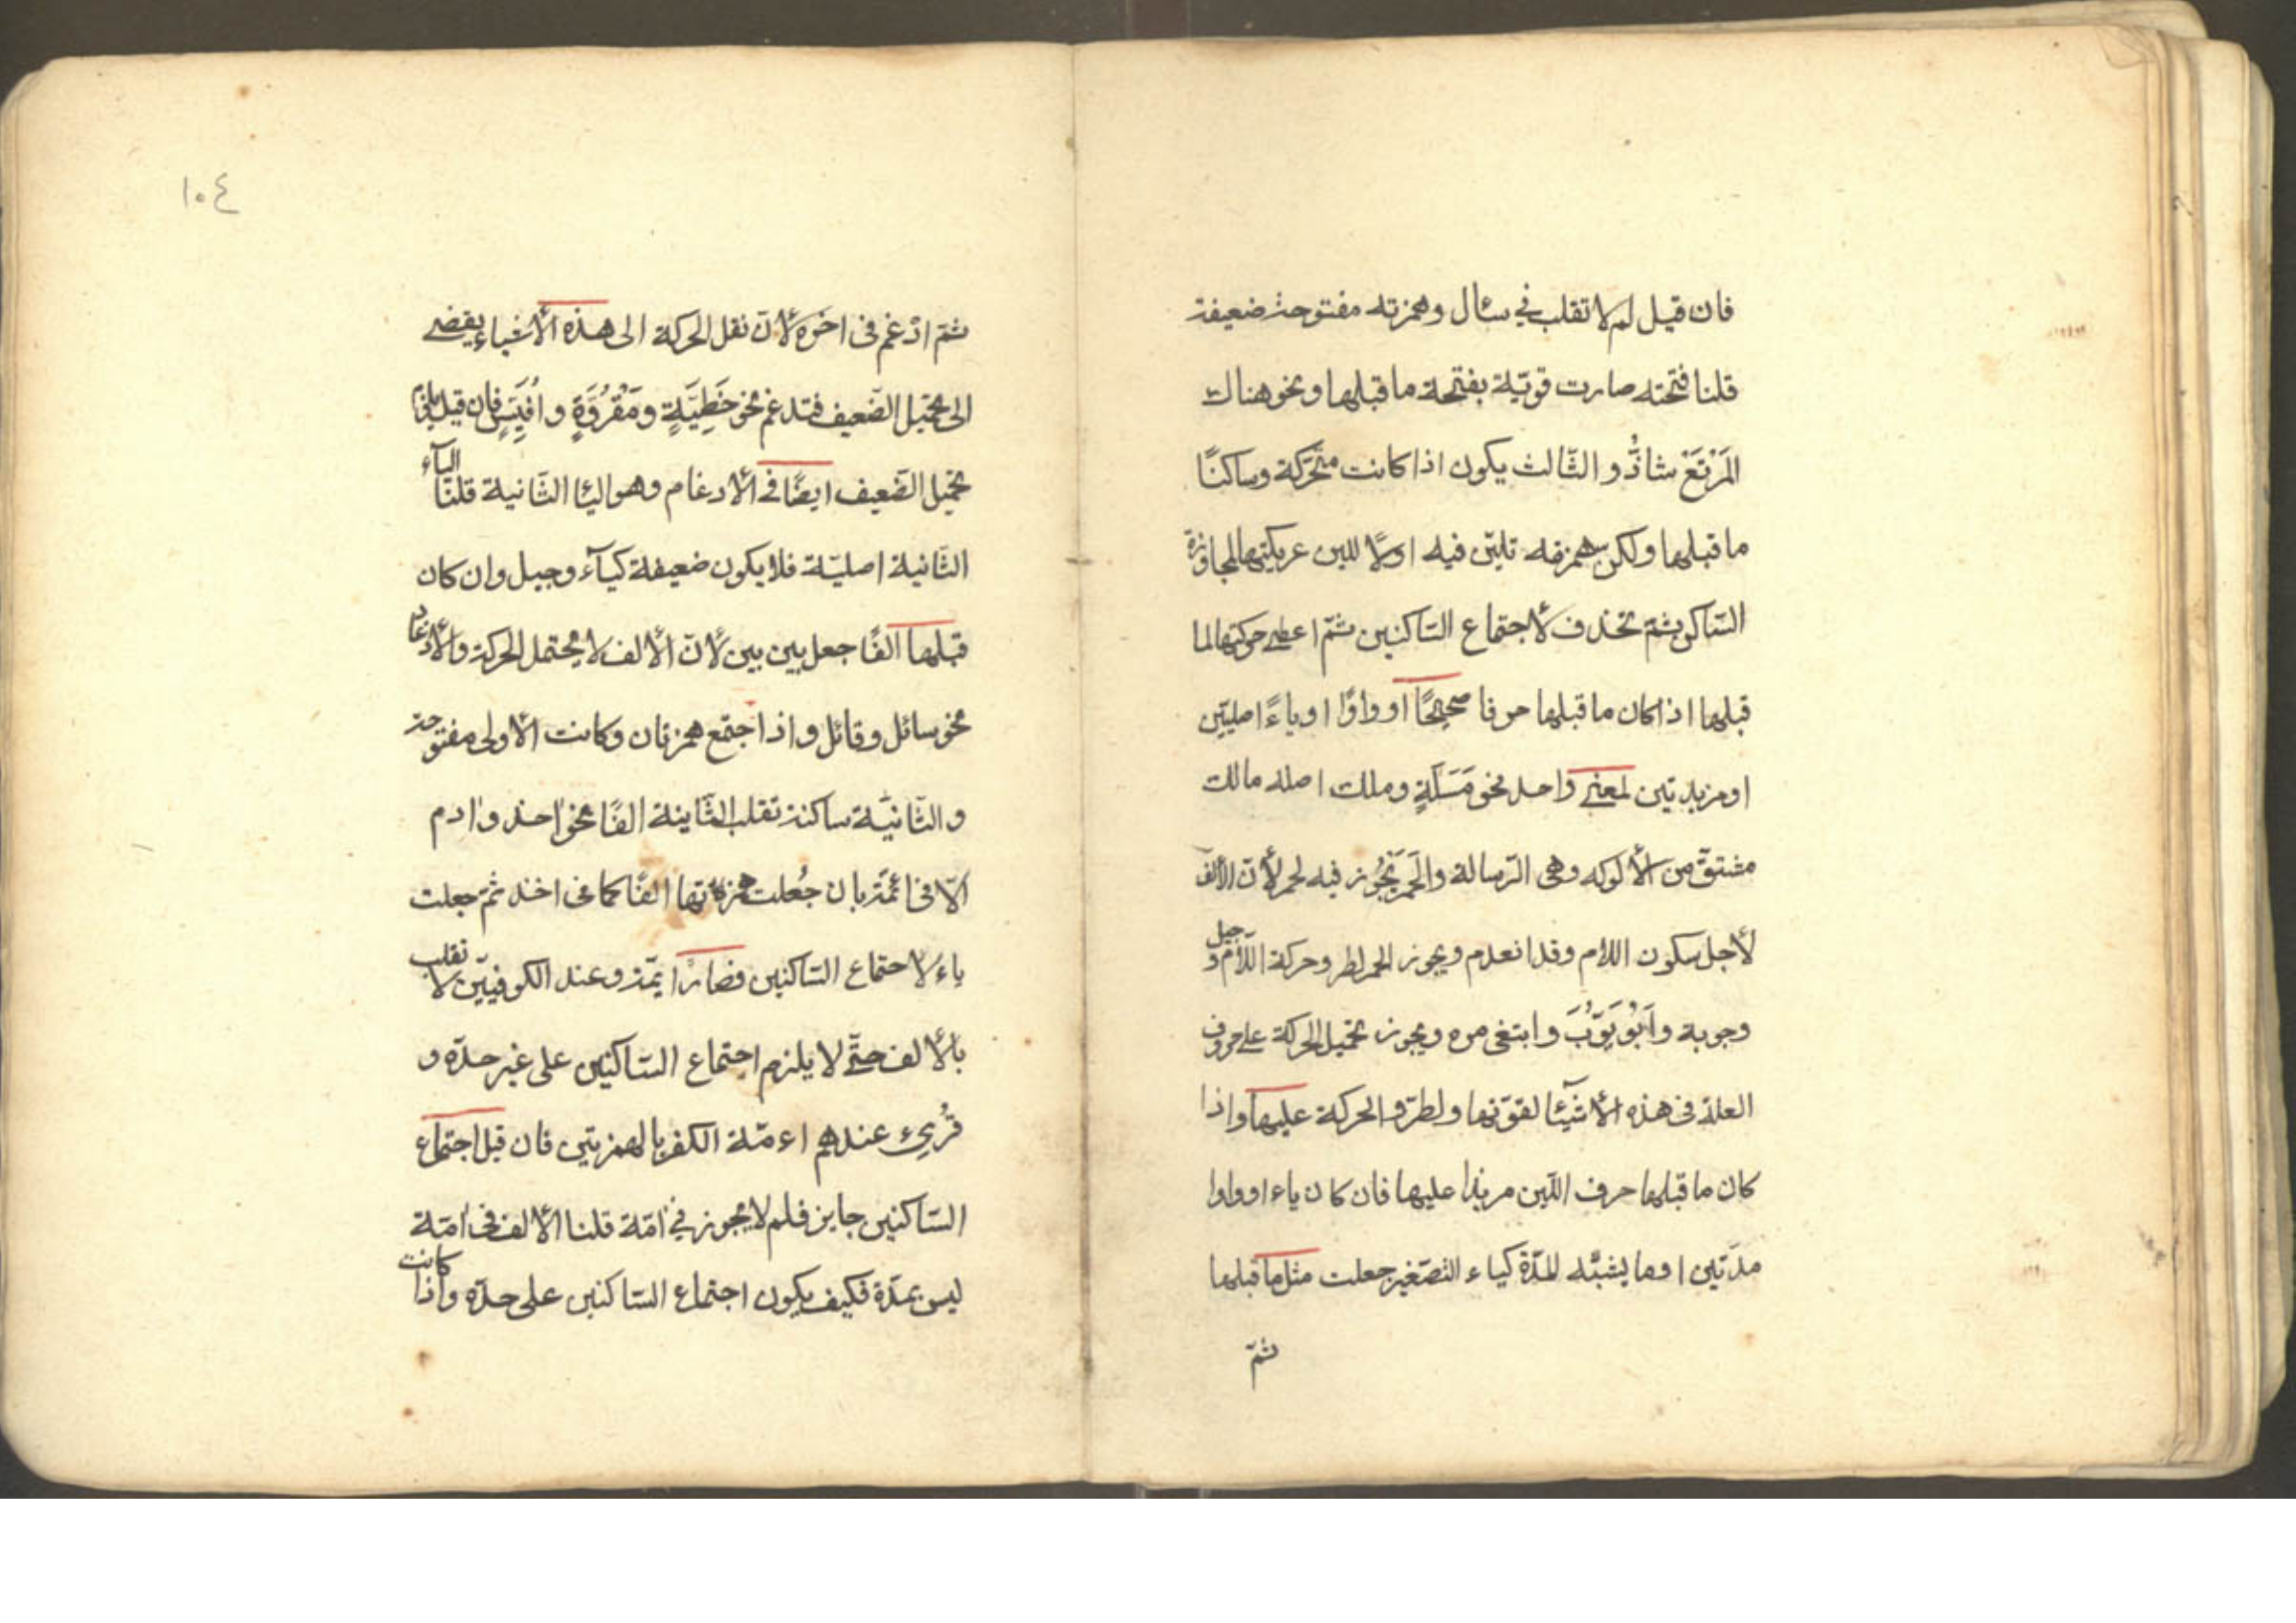 فان قيل لم لا تقلب في سئال وهمزته مفتوحة ضعيفة
قلنا فتحته صارت قويّة بفتحة ما قبلها ونحو هناك
المَرْتَعْ شاذٌّ والثّالث يكون اذا كانت متحّركة وساكنًا
ما قبلها ولكن همزته تليّن فيه اوّلًا للين عريكتها لمجاوزة
السّاكن ثمّ تحذف لأجتماع السّاكنين ثمّ اعطى حركتها لما
قبلها اذا كان ما قبلها حرفا صحيحًا او واوًا او ياءً اصليّين
او مزيدتين لمعنى واحد نحو مَسَلَةٍ وملك اصله مالك
مشتقّ من الألوكه وهى الرّسالة والَحمَر يَجُوز فيه لحمر لأنّ الألف
لأجل سكون اللام وقد انعدم ويجوز الحمر لطر وحركة اللّام و جيل
وجوبة وابُو يَوّبُ وابتغى مره ويجوز تحميل الحركة على حروف
العلة فى هذه الأشيئا لقوّتها ولطرّو الحركة عليها واذا
كان ما قبلها حرف اللّين مزيدا عليها فان كان ياء او واوا
مدّتين او ما يشبّه المدّة كياء التصّغير جعلت مثل ما قبلها
ثمّ
١٠٤
ثمّ ادْغم فى اخره لأنّ نقل الحركة الى هذه الأشياء يفضى
الى تحميل الضّعيف فتدغم نحو خَطِيَّةٍ ومَقْرُوَّةٍ وافُيِّسٍ فان قيل يلزم
تحميل الضّعيف ايضًا فى الأدغام وهو اليا الثّانية قلنا اليآء
الثّانية اصليّة فلا يكون ضعيفة كيآء وجيل وان كان
قبلها الفًا جعل بين بين لأنّ الألف لا يحتمل الحركة والأدغام
نحو سائل وقائل واذا اجتمع همزتان وكانت الأولى مفتوحة
والثّانيّة ساكنة تقلب الثّاينة الفًا نحو اخذ وادم
الّا فى ائمّة بان جُعلت همزتها الفًا كما فى اخذ ثمّ جعلت
ياء لاجتماع السّاكنين فصار ايمّة وعند الكوفيّين لا تقلب
بالألف حتّى لا يلزم اجتماع السّاكنين على غير حدّه و
قُرِىء عندهم اءمّة الكفر بالهمزتين فان قيل اجتماع
السّاكنين جايز فلم لا يجوز فى امّة قلنا الألف فى امّة
ليس بمدّة فكيف يكون اجتماع السّاكنين على حدّه واذا كانت